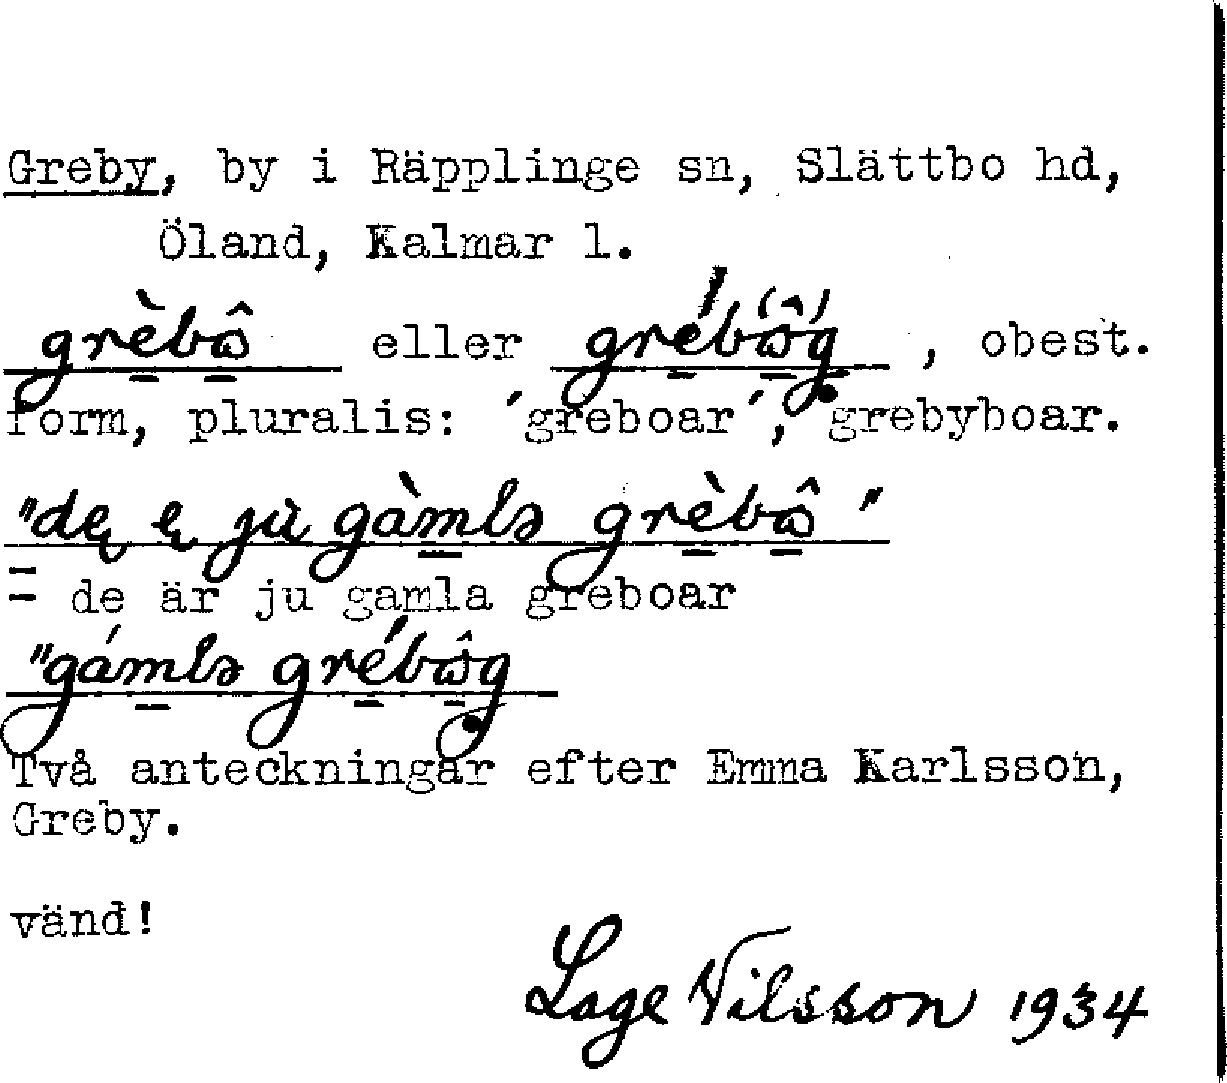 Greby, by i Räpplinge sn, Slättbo hd,
Öland, Kalmar l.
grèbô eller grébô(ˆ)g, obest.
form, pluralis: ´greboar´, grebyboar.
"dę ę jù gàmlə grèbô"
= de är ju gamla greboar
"gámlə grébôg
Två anteckningar efter Emma Karlsson,
Greby.
vänd!
Lage Nilsson 1934